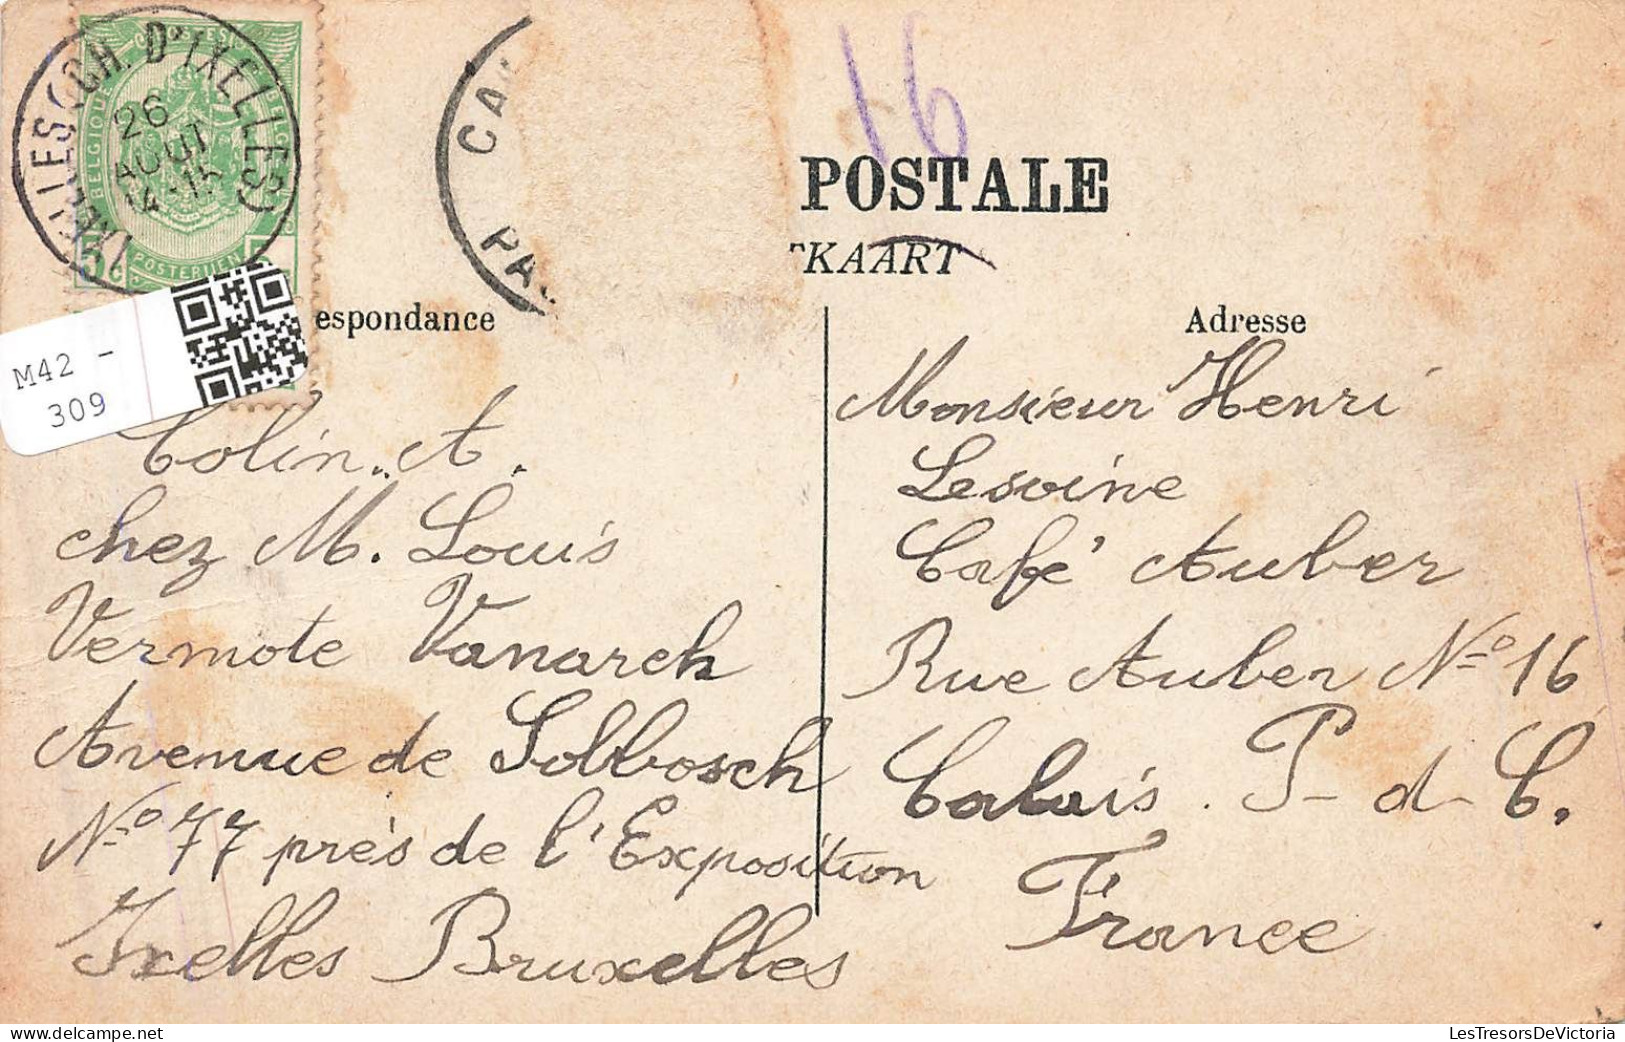 IXELLES (CH. D'IXELLES)
26
AOUT
14-15
BELGIQUE
BELGIE
POSTERIJEN
CA
PA
16
POSTALE
TKAART
espondance
Adresse
M42 -
309
Colin. A.
chez M. Louis
Vermote Vanarch
Avenue de Solbosch
N° 77 près de l'Exposition
Ixelles Bruxelles
Monsieur Henri
Lesoine
Café Auber
Rue Auber N° 16
Calais. P-d-C.
France
LesTresorsDeVictoria